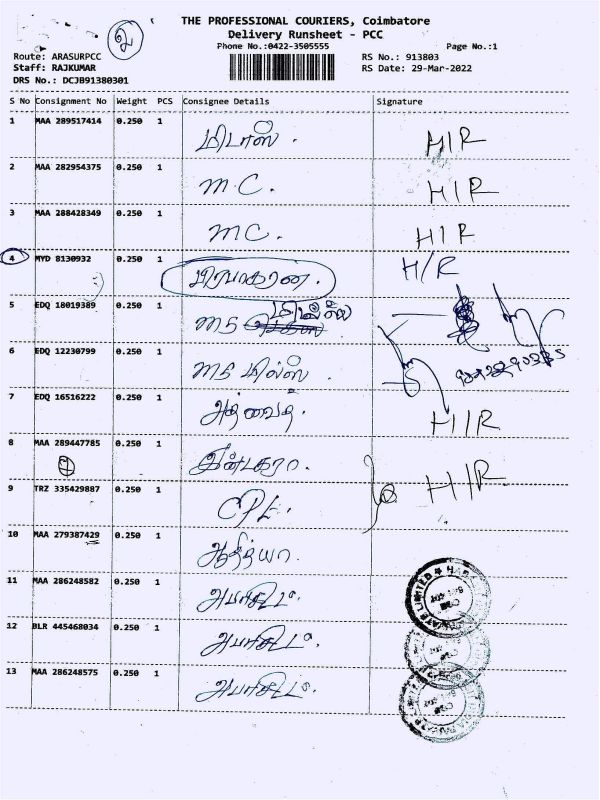 உ
THE PROFESSIONAL COURIERS, Coimbatore
Delivery Runsheet - PCC
Phone No.:0422-3505555 Page No.:1
Route: ARASURPCC RS No.: 913803
Staff: RAJKUMAR RS Date: 29-Mar-2022
DRS No.: DCJB91380301
S No Consignment No Weight PCS Consignee Details Signature
1 MAA 289517414 0.250 1 மிடாஸ். H/R
2 MAA 282954375 0.250 1 M.C. H/R
3 MAA 288428349 0.250 1 MC. H/R
4 MYD 8130932 0.250 1 பிரபாகரன். H/R
5 EDQ 18019389 0.250 1 MS மில்ஸ்
6 EDQ 12230799 0.250 1 MS மில்ஸ்.
7 EDQ 16516222 0.250 1 அத்வைத். H/R
8 MAA 289447785 0.250 1 இன்டகரா. H/R
9 TRZ 335429887 0.250 1 CPE.
10 MAA 279387429 0.250 1 ஆதித்யா.
11 MAA 286248582 0.250 1
12 BLR 445468034 0.250 1
13 MAA 286248575 0.250 1